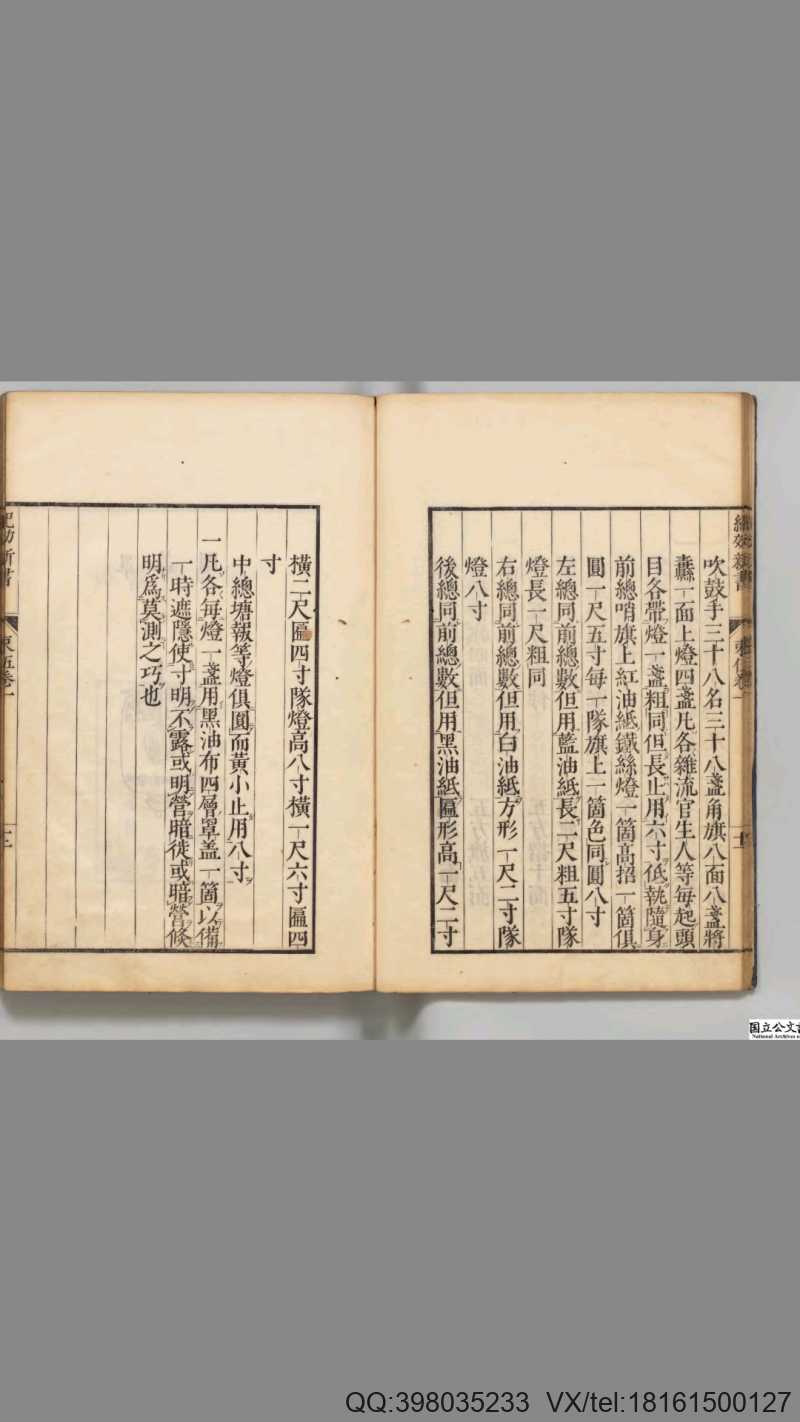 吹鼓手三十八名三十八盞角旗八面八盞將
纛一面上燈四盞凡各雜流官生人等每起頭
目各帶燈一盞粗同但長止用六寸低執隨身
前總哨旗上紅油紙鐵絲燈一箇高招一箇俱
圓一尺五寸每一隊旗上一箇色同圓八寸
左總同前總數但用藍油紙長二尺粗五寸隊
燈長一尺粗同
右總同前總數但用白油紙方形一尺二寸隊
燈八寸
後總同前總數但用黑油紙匾形高一尺二寸
橫二尺匾四寸隊燈高八寸橫一尺六寸匾四
寸
中總塘報等燈俱圓而黃小止用八寸
一凡各每燈一盞用黑油布四層罩盖一箇以備
一時遮隱使寸明不露或明營暗徒或暗營倐
明爲莫測之巧也
国立公文
National Archives
QQ:398035233 VX/tel:18161500127